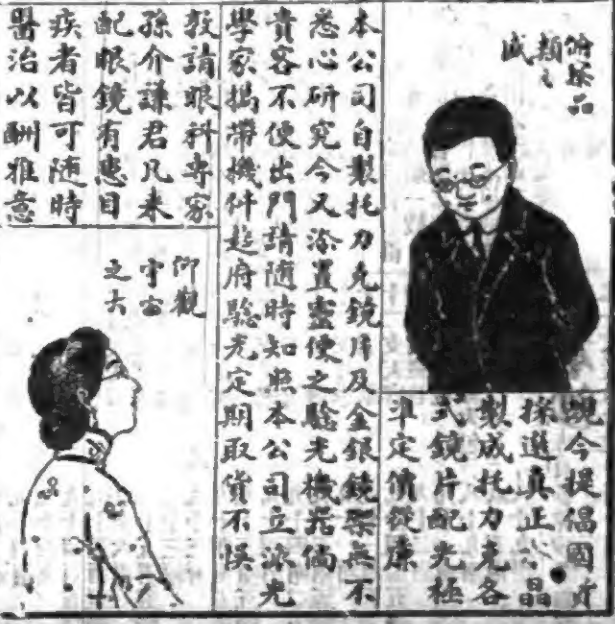 俯察品
類之
盛
現今提倡國貨
採選真正水晶
製成托力克各
式鏡片配光極
準定價從廉
本公司自製托力克鏡片及金銀鏡架無不
悉心研究今又添置靈便之驗光機器倘
貴客不便出門請隨時知照本公司立派光
學家攜帶機件趨府驗光定期取貨不悞
敦請眼科專家
孫介謙君凡來
配眼鏡有患目
疾者皆可隨時
醫治以酬雅意
仰觀
宇宙
之大